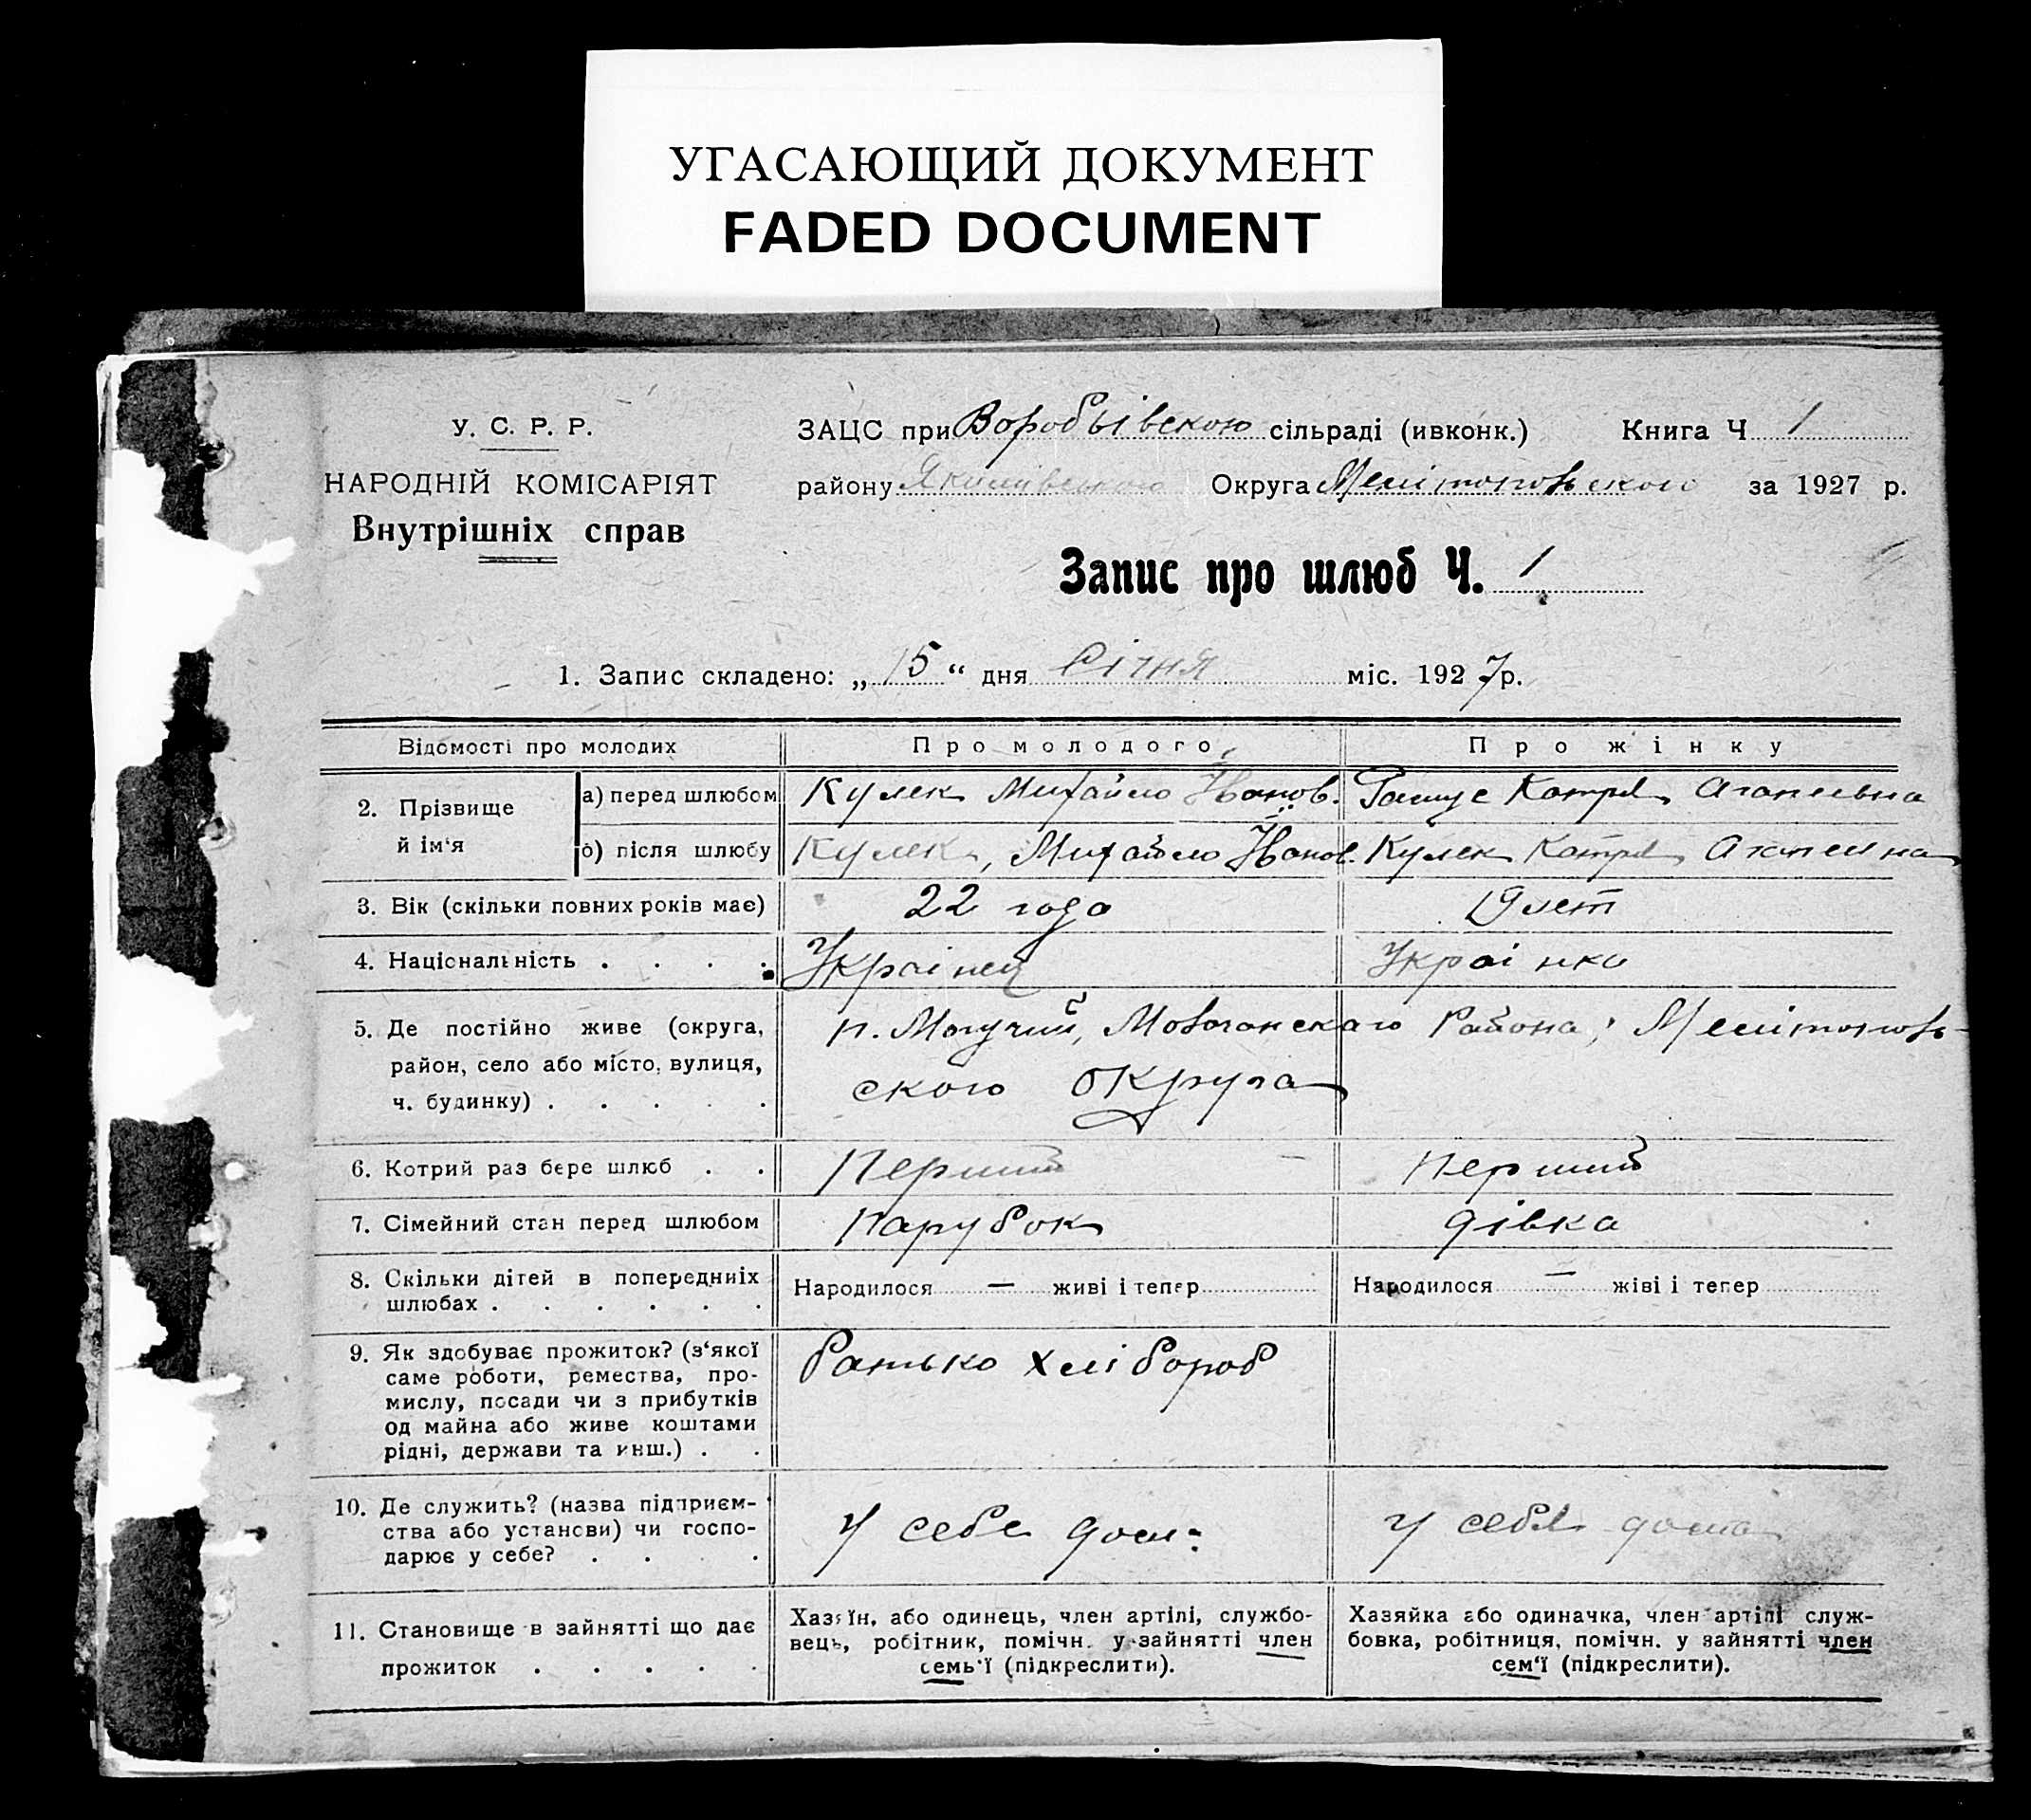 УГАСАЮЩИЙ ДОКУМЕНТ
FADED DOCUMENT
У. С. Р. Р.
НАРОДНІЙ КОМІСАРІЯТ
Внутрішніх справ
ЗАЦС при Воробьівскою сільраді (ивконк.) Книга Ч 1
району Якимівського Округа Мелітопольского за 1927 р.
Запис про шлюб Ч. 1
1. Запис складено: „ 15 “ дня Січня міс. 1927 р.
Відомості про молодих Про молодого Про жінку
2. Прізвище й ім‘я
а) перед шлюбом Кулек Михайло Іванов. Катря Агапиевна
б) після шлюбу Кулек, Михайло Іванов. Кулек Катря
3. Вік (скільки повних років має) 22 года 19 лет
4. Національність . . . . Украінец Украінка
5. Де постійно живе (округа, п. Могучий, Района, Мелітополь-
район, село або місто, вулиця, ского округа
ч. будинку) . . . . .
6. Котрий раз бере шлюб . . Перший перший
7. Сімейний стан перед шлюбом парубок дівка
8. Скільки дітей в попередниіх Народилося — живі і тепер Народилося — жіві і тепер
шлюбах . . . . . .
9. Як здобуває прожиток? (з‘якої батько хлібороб
саме роботи, ремества, про-
мислу, посади чи з прибутків
од майна або живе коштами
рідні, держави та инш.) . .
10. Де служить? (назва підприєм-
ства або установи) чи госпо- у себе дом: у себя дома
дарює у себе? . . . .
11. Становище в зайнятті що дає
прожиток . . . . .
Хазяїн, або одинець, член артілі, службо-
вець, робітник, помічн. у зайнятті член
семь‘ї (підкреслити).
Хазяйка або одиначка, член артілі служ-
бовка, робітниця, помічн. у зайнятті член
сем‘ї (підкреслити).